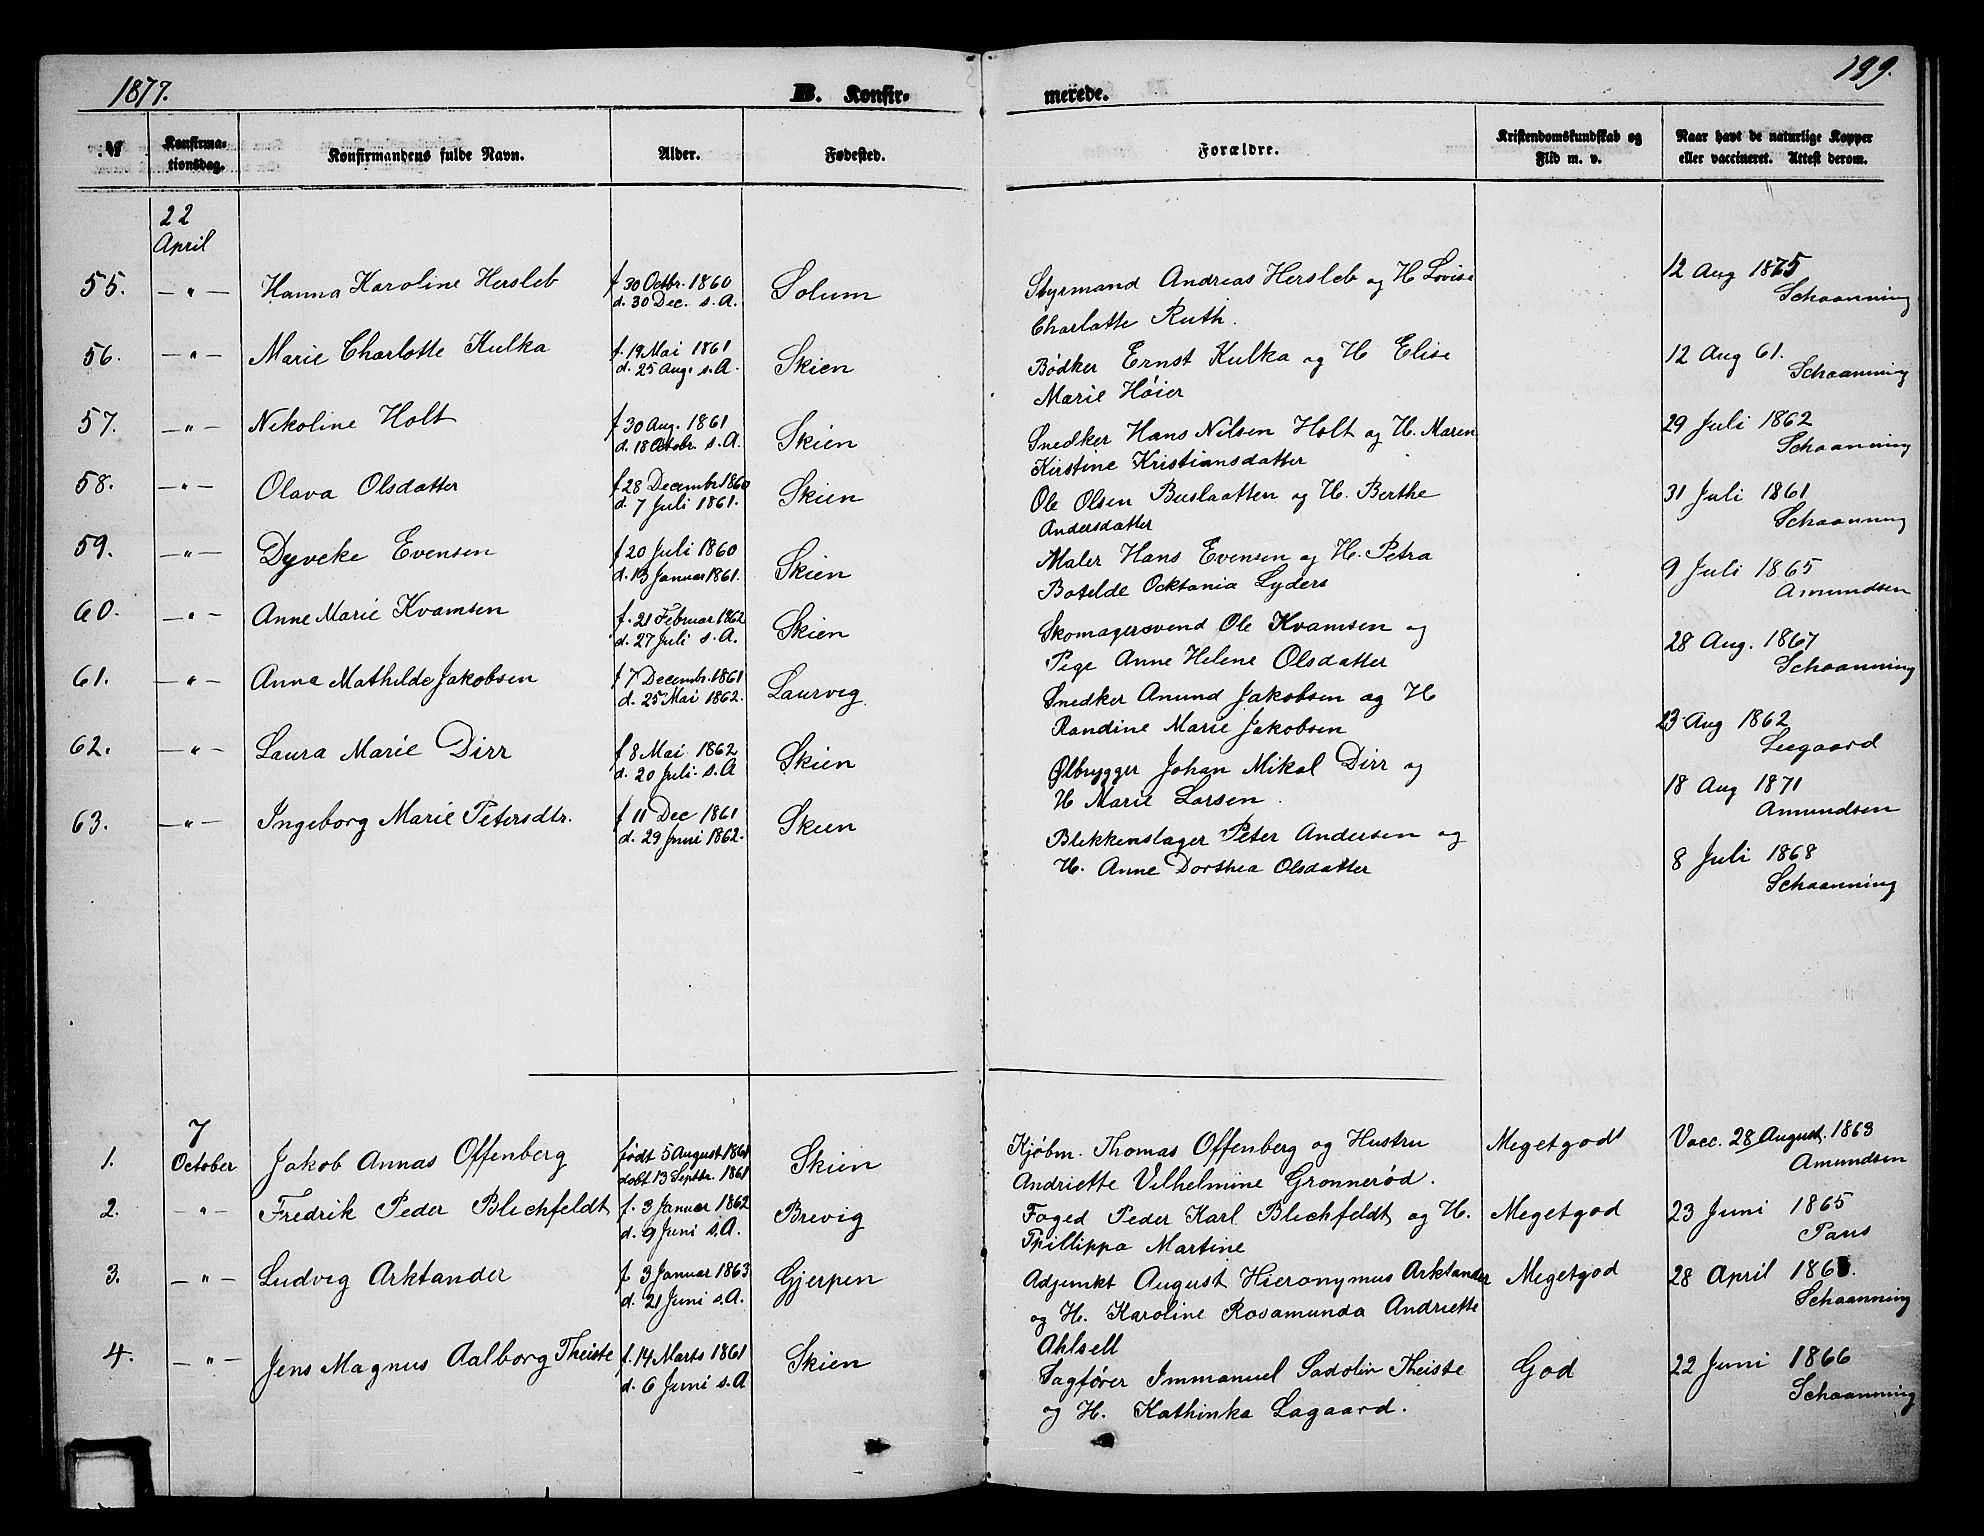 1877.
B. Konfir-
merede.
199.
№
Konfirma-
tionsdag.
Konfirmandens fulde Navn.
Alder.
Fødested.
Forældre.
Kristendomskundskab og
Flid m. v.
Naar havt de naturlige Kopper
eller vaccineret. Attest derom.
22
April
55. — " — Hanna Karoline Hersleb f 30 Octbr. 1860 Solum Styrmand Andreas Hersleb og H Lovise 12 Aug 1875
d. 30 Dec. s. A. Charlotte Ruth. Schaanning
56. — " — Marie Charlotte Kulka f. 19 Mai 1861 Skien Bødker Ernst Kulka og H Elise 12 Aug 61.
d. 25 Aug. s. A. Marie Høier Schaanning
57. — " — Nikoline Holt f 30 Aug. 1861 Skien Snedker Hans Nilsen Holt og H. Maren 29 Juli 1862
d. 18 Octobr. s. A. Kirstine Kristiansdatter Schaanning
58. — " — Olava Olsdatter f 28 Decembr 1860 Skien Ole Olsen Buslaatten og H. Berthe 31 Juli 1861
d. 7 Juli 1861. Andersdatter Schaanning
59. — " — Dyveke Evensen f 20 Juli 1860 Skien Maler Hans Evensen og H. Petra 9 Juli 1865
d. 13 Januar 1861. Botelde Ocktania Lyders Amundsen
60. — " — Anne Marie Kvamsen f. 21 Februar 1862 Skien Skomagersvend Ole Kvamsen og 28 Aug. 1867
d. 27 Juli s. A. Pige Anne Helene Olsdatter Schaanning
61. — " — Anna Mathilde Jakobsen f 7 Decembr. 1861 Laurvig Snedker Anund Jakobsen og H 23 Aug 1862
d. 25 Mai 1862. Randine Marie Jakobsen Leegaard
62. — " — Laura Marie Dirr f 8 Mai 1862 Skien Ølbrygger Johan Mikal Dirr og 18 Aug 1871
d. 20 Juli. s. A H Marie Larsen. Amundsen
63. — " — Ingeborg Marie Petersdtr. f 11 Dec 1861 Skien Blikkenslager Peter Andersen og 8 Juli 1868
d. 29 Juni 1862. H. Anne Dorthea Olsdatter Schaanning
7
1. October Jakob Annas Offenberg født 5 August 1861 Skien Kjøbm. Thomas Offenberg og Hustru Megetgodt Vacc. 28 August. 1863
døbt 13 Septbr. 1861 Andriette Vilhelmine Grønnerød. Amundsen
2. — " — Fredrik Peder Blichfeldt f. 3 Januar 1862 Brevig Foged Peder Karl Blichfeldt og H. Megetgod 23 Juni 1865
d. 9 Juni s. A. Phillippa Martine Paus
3. — " — Ludvig Arktander f. 3 Januar 1863 Gjerpen Adjunkt August Hieronymus Arktander Megetgod 28 April 186
d. 21 Juni s. A. og H. Karoline Rosamunda Andriette Schaanning
Ahlsell
4. — " — Jens Magnus Aalborg Theiste f. 14 Marts 1861 Skien Sagfører Immanuel Sadolin Theiste God 22 Juni 1866
d. 6 Juni s. A og H. Kathinka Lagaard. Schaanning